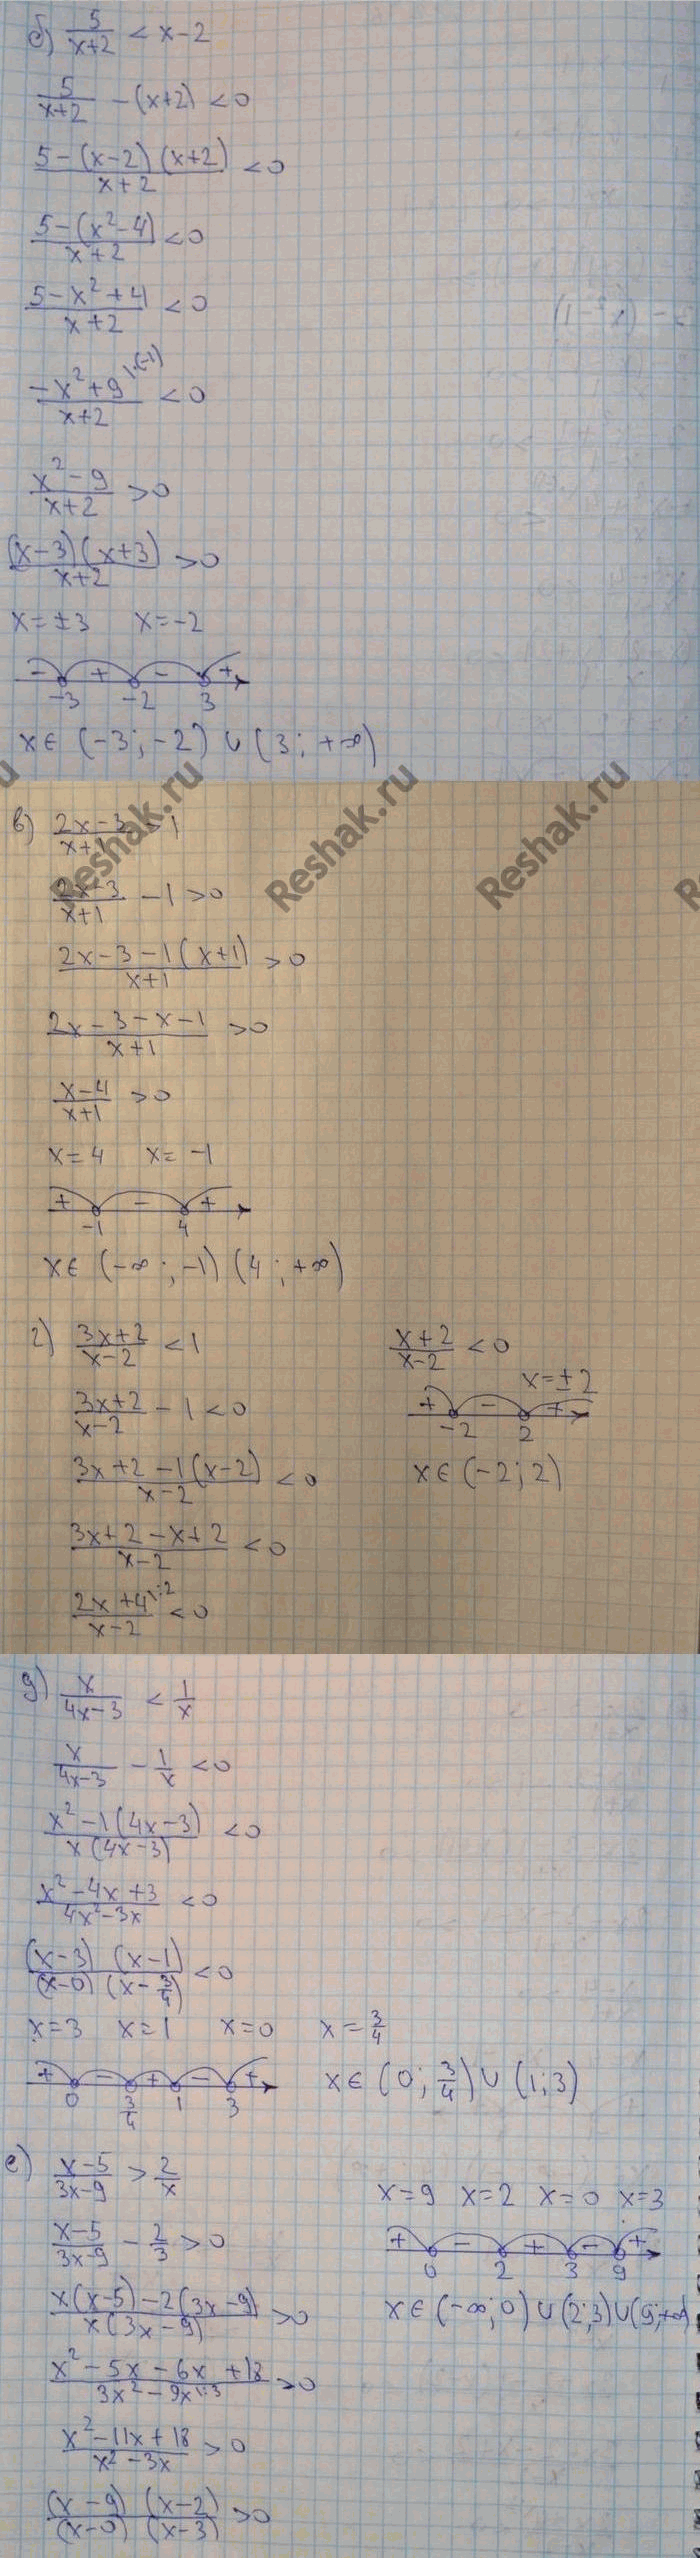 б) 5/(x+2) < x-2
5/(x+2) - (x+2) < 0
(5-(x-2)(x+2))/(x+2) < 0
(5-(x²-4))/(x+2) < 0
(5-x²+4)/(x+2) < 0
(-x²+9)/(x+2) < 0 |·(-1)
(x²-9)/(x+2) > 0
((x-3)(x+3))/(x+2) > 0
x=±3 x=-2
- + - +
-3 -2 3
x∈ (-3; -2) ∪ (3; +∞)
Reshak.ru Reshak.ru Reshak.ru
в) (2x-3)/(x+1) > 1
(2x-3)/(x+1) - 1 > 0
(2x-3-1(x+1))/(x+1) > 0
(2x-3-x-1)/(x+1) > 0
(x-4)/(x+1) > 0
x=4 x=-1
+ - +
-1 4
x∈ (-∞; -1) (4; +∞)
г) (3x+2)/(x-2) < 1
(3x+2)/(x-2) - 1 < 0
(3x+2-1(x-2))/(x-2) < 0
(3x+2-x+2)/(x-2) < 0
(2x+4)/(x-2) < 0 |:2
(x+2)/(x-2) < 0
x=±2
+ - +
-2 2
x∈ (-2; 2)
д) x/(4x-3) < 1/x
x/(4x-3) - 1/x < 0
(x²-1(4x-3))/(x(4x-3)) < 0
(x²-4x+3)/(4x²-3x) < 0
((x-3)(x-1))/((x-0)(x-3/4)) < 0
x=3 x=1 x=0 x=3/4
+ - + - +
0 3/4 1 3
x∈ (0; 3/4) ∪ (1; 3)
е) (x-5)/(3x-9) > 2/x
(x-5)/(3x-9) - 2/3 > 0
(x(x-5)-2(3x-9))/(x(3x-9)) > 0
(x²-5x-6x+18)/(3x²-9x) > 0 |:3
(x²-11x+18)/(x²-3x) > 0
((x-9)(x-2))/((x-0)(x-3)) > 0
x=9 x=2 x=0 x=3
+ - + - +
0 2 3 9
x∈ (-∞; 0) ∪ (2; 3) ∪ (9; +∞)